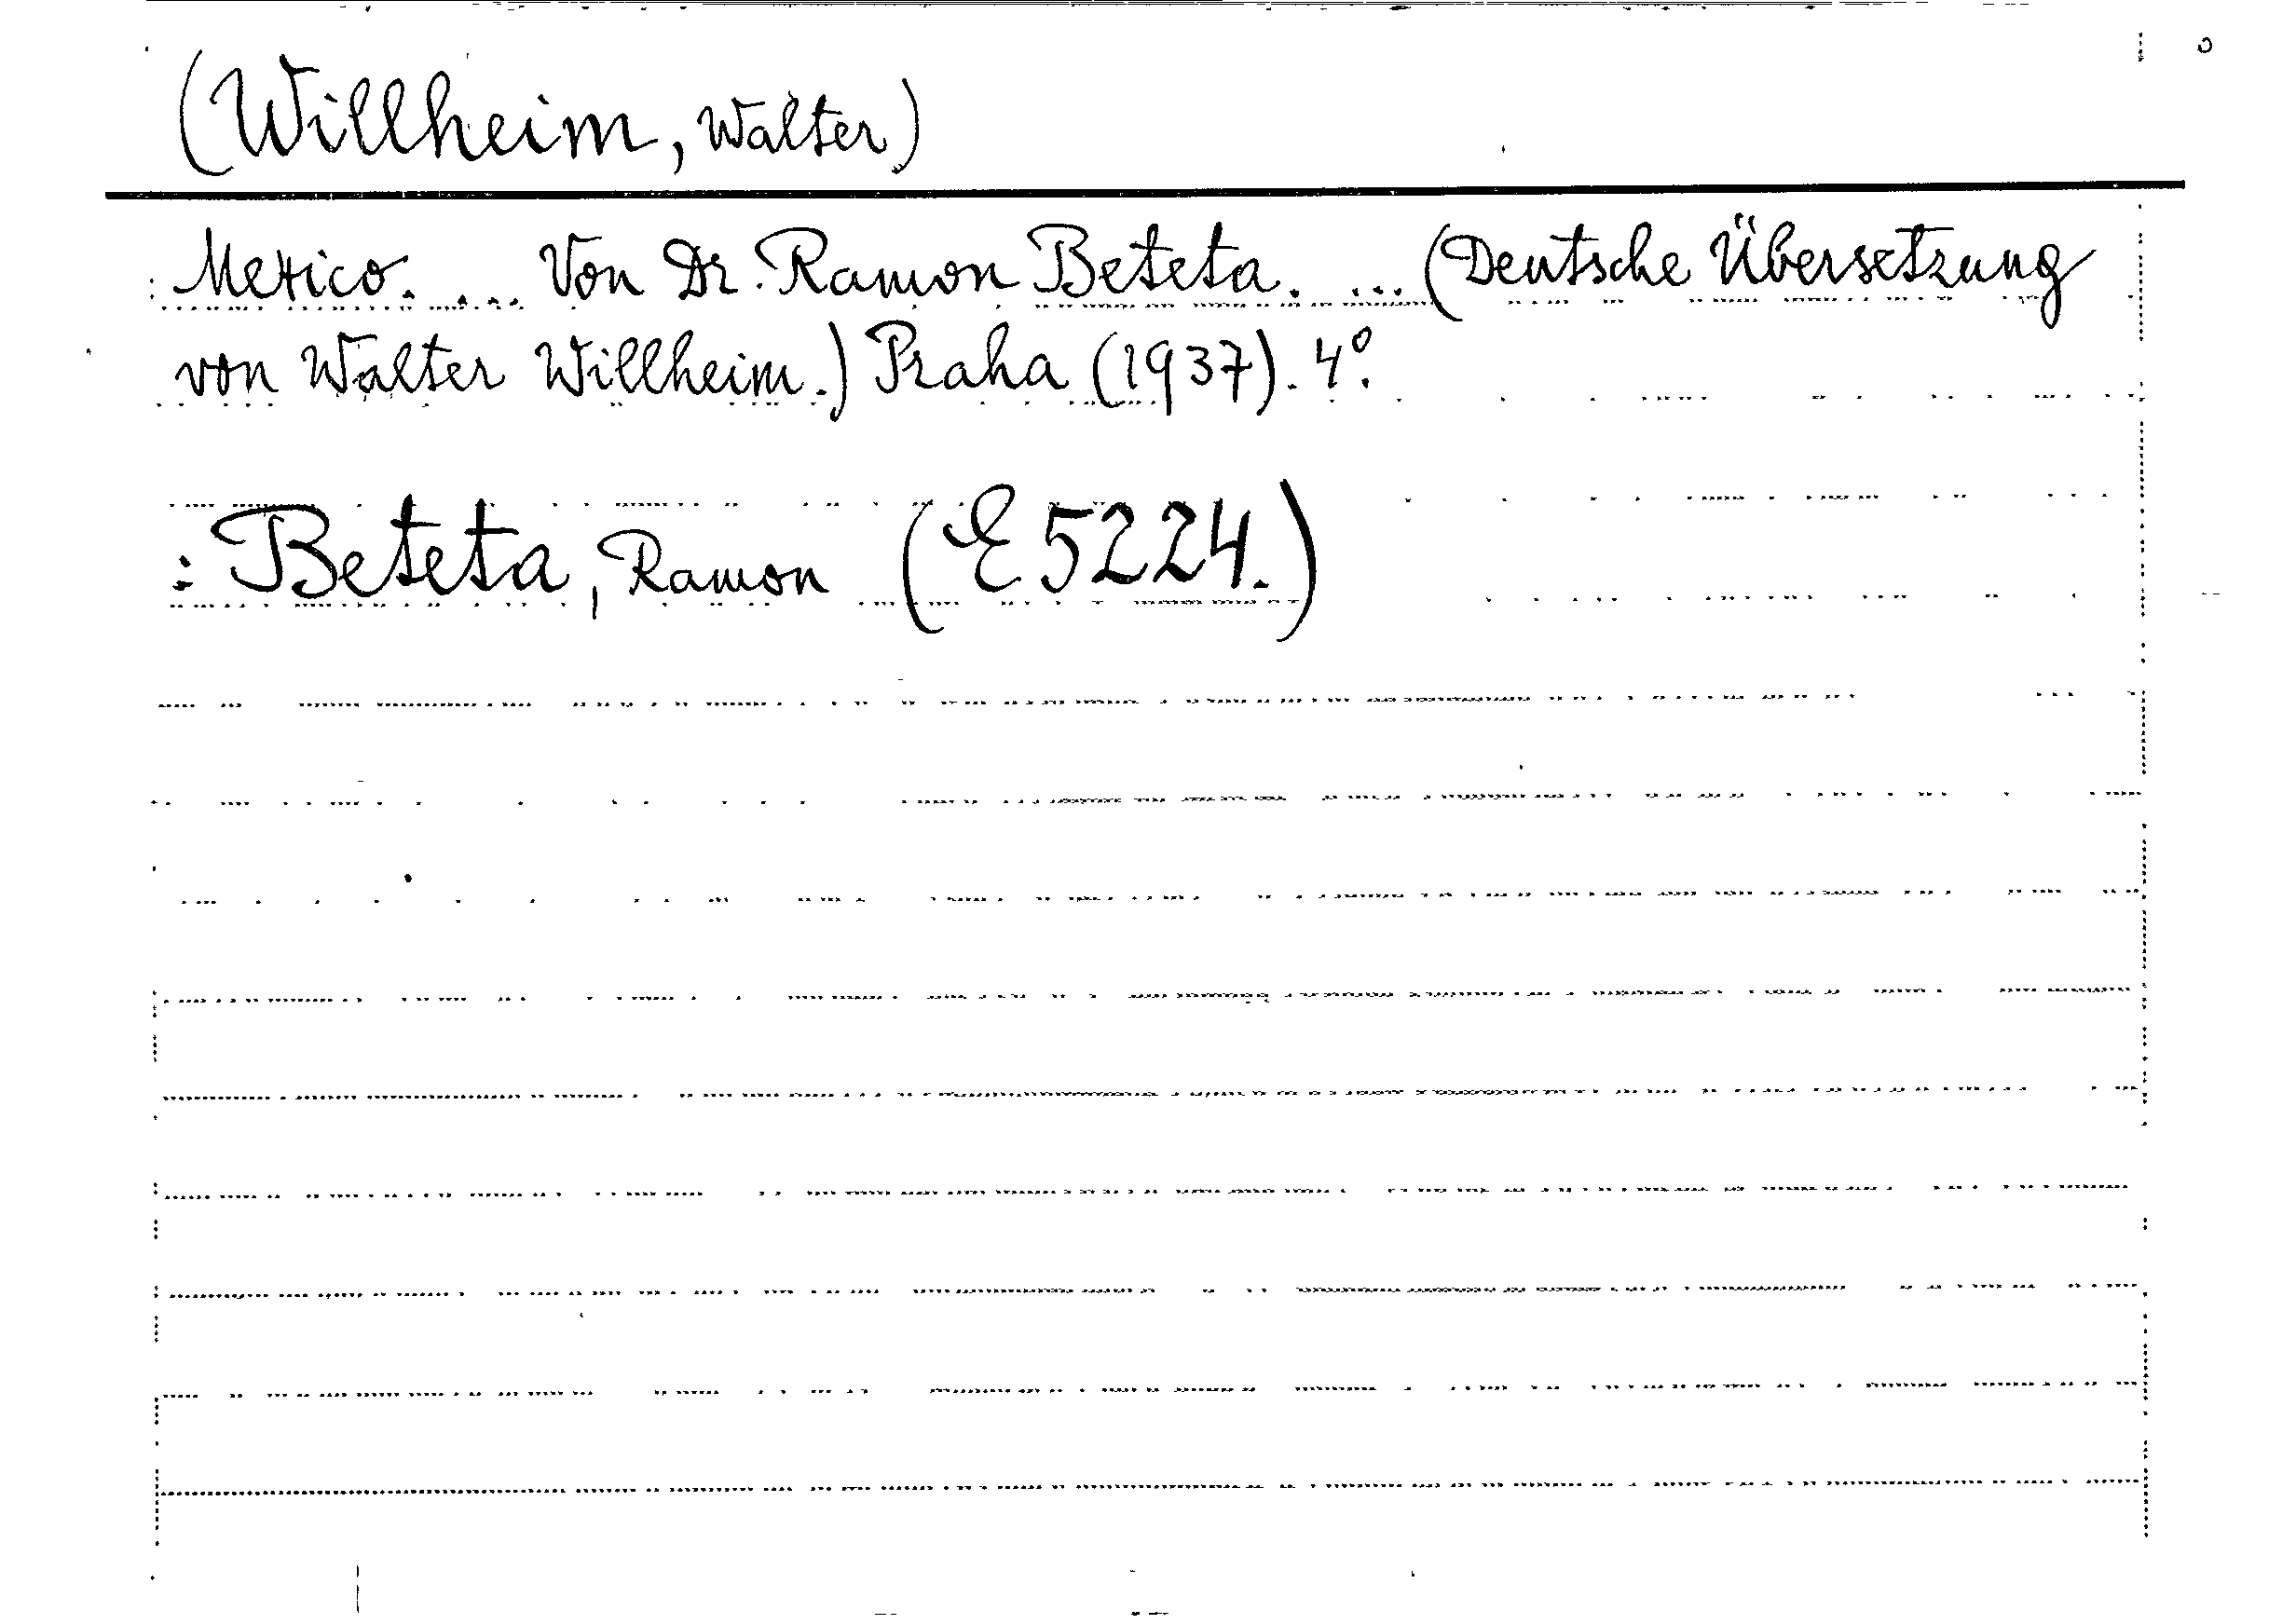 (Willheim, Walter)
Mexico. ... Von Dr. Ramon Beteta. ... (Deutsche Übersetzung
von Walter Willheim.) Praha (1937). 4°.
: Beteta, Ramon (E 5224.)